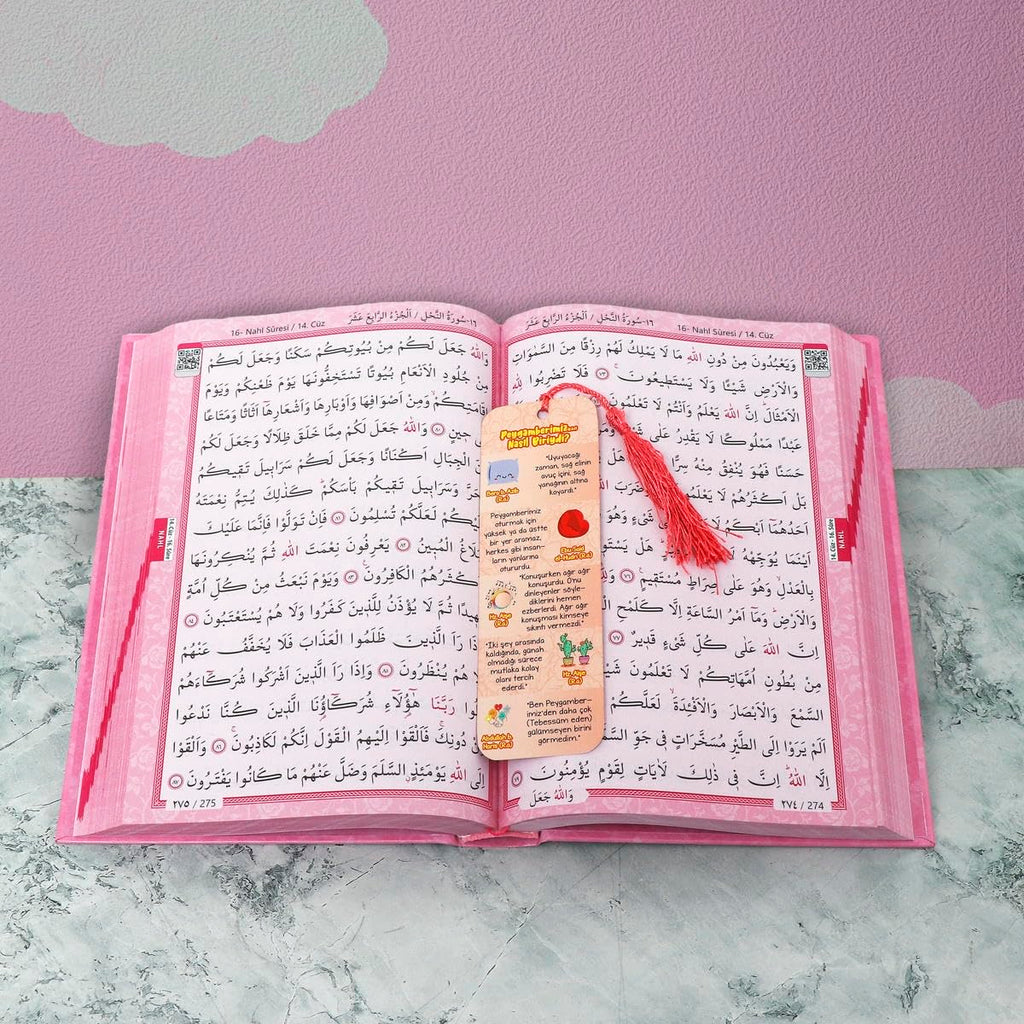 16- Nahl Sûresi / 14. Cüz
١٦-سُورَةُ النَّحْلِ / اَلْجُزْءُ الرَّابِعَ عَشَرَ
وَيَعْبُدُونَ مِنْ دُونِ اللّٰهِ مَا لَا يَمْلِكُ لَهُمْ رِزْقًا مِنَ السَّمٰوَاتِ
وَالْاَرْضِ شَيْئًا وَلَا يَسْتَط۪يعُونَۚ ﴿٧٣﴾ فَلَا تَضْرِبُوا لِلّٰهِ
الْاَمْثَالَۜ اِنَّ اللّٰهَ يَعْلَمُ وَاَنْتُمْ لَا تَعْلَمُونَ
عَبْدًا مَمْلُوكًا لَا يَقْدِرُ عَلٰى
حَسَنًا فَهُوَ يُنْفِقُ مِنْهُ سِرًّا هَلْ
بَلْ اَكْثَرُهُمْ لَا يَعْلَمُونَ
اَحَدُهُمَٓا اَبْكَمُ لَا شَيْءٍ وَهُوَ
اَيْنَمَا يُوَجِّهْهُ لَا هَلْ يَسْتَوِي
بِالْعَدْلِۙ وَهُوَ عَلٰى صِرَاطٍ مُسْتَق۪يمٍ۟ ﴿٧٦﴾
وَالْاَرْضِۜ وَمَٓا اَمْرُ السَّاعَةِ اِلَّا كَلَمْحِ
اِنَّ اللّٰهَ عَلٰى كُلِّ شَيْءٍ قَد۪يرٌ ﴿٧٧﴾
مِنْ بُطُونِ اُمَّهَاتِكُمْ لَا تَعْلَمُونَ
السَّمْعَ وَالْاَبْصَارَ وَالْاَفْـِٔدَةَۙ لَعَلَّكُمْ
اَلَمْ يَرَوْا اِلَى الطَّيْرِ مُسَخَّرَاتٍ ف۪ي جَوِّ
اِلَّا اللّٰهُۜ اِنَّ ف۪ي ذٰلِكَ لَاٰيَاتٍ لِقَوْمٍ يُؤْمِنُونَ
وَاللّٰهُ جَعَلَ
٢٧٤ / 274
14. Cüz- 16. Sûre
NAHL
16- Nahl Sûresi / 14. Cüz
١٦-سُورَةُ النَّحْلِ / اَلْجُزْءُ الرَّابِعَ عَشَرَ
وَاللّٰهُ جَعَلَ لَكُمْ مِنْ بُيُوتِكُمْ سَكَنًا وَجَعَلَ لَكُمْ
مِنْ جُلُودِ الْاَنْعَامِ بُيُوتًا تَسْتَخِفُّونَهَا يَوْمَ ظَعْنِكُمْ وَيَوْمَ
اِقَامَتِكُمْۙ وَمِنْ اَصْوَافِهَا وَاَوْبَارِهَا وَاَشْعَارِهَٓا اَثَاثًا وَمَتَاعًا
ح۪ينٍ ﴿٨٠﴾ وَاللّٰهُ جَعَلَ لَكُمْ مِمَّا خَلَقَ ظِلَالًا وَجَعَلَ لَكُمْ
الْجِبَالِ اَكْنَانًا وَجَعَلَ لَكُمْ سَرَاب۪يلَ تَق۪يكُمُ
وَسَرَاب۪يلَ تَق۪يكُمْ بَأْسَكُمْۜ كَذٰلِكَ يُتِمُّ نِعْمَتَهُ
لَعَلَّكُمْ تُسْلِمُونَ ﴿٨١﴾ فَاِنْ تَوَلَّوْا فَاِنَّمَا عَلَيْكَ
الْمُب۪ينُ ﴿٨٢﴾ يَعْرِفُونَ نِعْمَتَ اللّٰهِ ثُمَّ يُنْكِرُونَهَا
الْكَافِرُونَ۟ ﴿٨٣﴾ وَيَوْمَ نَبْعَثُ مِنْ كُلِّ اُمَّةٍ
ثُمَّ لَا يُؤْذَنُ لِلَّذ۪ينَ كَفَرُوا وَلَا هُمْ يُسْتَعْتَبُونَ ﴿٨٤﴾
رَاَ الَّذ۪ينَ ظَلَمُوا الْعَذَابَ فَلَا يُخَفَّفُ عَنْهُمْ
هُمْ يُنْظَرُونَ ﴿٨٥﴾ وَاِذَا رَاَ الَّذ۪ينَ اَشْرَكُوا شُرَكَٓاءَهُمْ
رَبَّنَا هٰٓؤُ۬لَٓاءِ شُرَكَٓاؤُ۬نَا الَّذ۪ينَ كُنَّا نَدْعُوا
دُونِكَۚ فَاَلْقَوْا اِلَيْهِمُ الْقَوْلَ اِنَّكُمْ لَكَاذِبُونَۚ ﴿٨٦﴾ وَاَلْقَوْا
اِلَى اللّٰهِ يَوْمَئِذٍۨ السَّلَمَ وَضَلَّ عَنْهُمْ مَا كَانُوا يَفْتَرُونَ ﴿٨٧﴾
٢٧٥ / 275
14. Cüz- 16. Sûre
NAHL
Peygamberimiz...
Nasıl Biriydi?
"Uyuyacağı
zaman, sağ elinin
avuç içini, sağ
yanağının altına
koyardı."
Bera b. Azib
(R.a)
Peygamberimiz
oturmak için
yüksek ya da üstte
bir yer aramaz,
herkes gibi insan-
ların yanlarına
otururdu.
Ebu Said
el-Hudri (R.a)
"Konuşurken ağır ağır
konuşurdu. O'nu
dinleyenler söyle-
diklerini hemen
ezberlerdi. Ağır ağır
konuşması kimseye
sıkıntı vermezdi."
Hz. Aişe
(R.a)
"İki şey arasında
kaldığında, günah
olmadığı sürece
mutlaka kolay
olanı tercih
ederdi."
Hz. Aişe
(R.a)
"Ben Peygamber-
imiz'den daha çok
(Tebessüm eden)
gülümseyen birini
görmedim."
Abdullah b.
Haris (R.a)